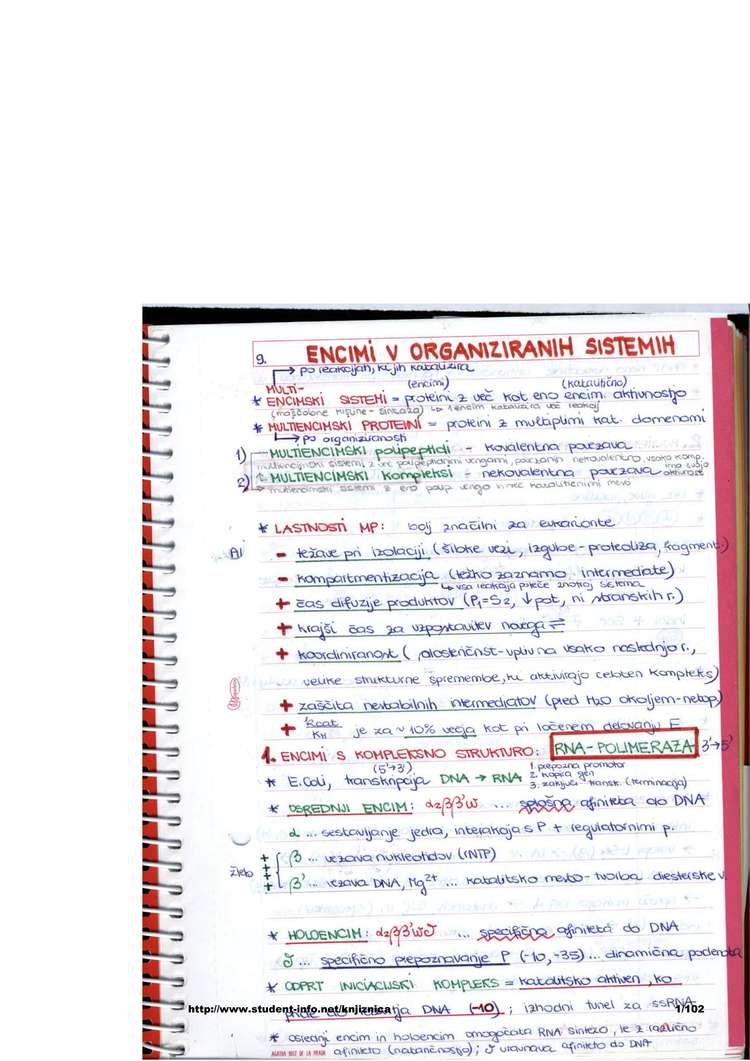 9. ENCIMI V ORGANIZIRANIH SISTEMIH
po reakcijah, ki jih katalizira
MULTI- (encimi) (katalitično)
* ENCIMSKI SISTEMI = proteini z več kot eno encim. aktivnostjo
(maščobne kisline - sintaza) ↳ 1 encim katalizira več reakcij
* MULTIENCIMSKI PROTEINI = proteini z multiplimi kat. domenami
↳ po organiziranosti
1) MULTIENCIMSKI polipeptidi - kovalentna povezava
multiencimski sistemi z več polipeptidnimi verigami, povezanih nekovalentno, vsaka komp. ima svojo aktivnost
2) MULTIENCIMSKI kompleksi - nekovalentna povezava
→ multiencimski sistemi z eno verigo in več katalitičnimi mesti
* LASTNOSTI MP: bolj značilni za evkarionte
- težave pri izolaciji (šibke vezi, izgube - proteoliza, fragment.)
- kompartmentizacija (težko zaznamo intermediate)
↳ vsa reakcija poteče znotraj sistema
+ čas difuzije produktov (P₁=S₂, ↓pot, ni stranskih r.)
+ krajši čas za vzpostavitev novega ⇌
+ koordiniranost (alosteričnst-vpliv na vsako naslednjo r.,
velike strukturne spremembe, ki aktivirajo celoten kompleks)
+ zaščita nestabilnih intermediatov (pred H₂O okoljem-netop)
+ kcat/KM je za ~10% večja kot pri ločenem delovanju E
1. ENCIMI S KOMPLEKSNO STRUKTURO: RNA-POLIMERAZA 3'→5'
(5'→3') 1. prepozna promotor
* E.Coli, transkripcija DNA → RNA 2. kopira gen
3. zaključi transk. (terminacija)
* OSREDNJI ENCIM: α₂ββ'ω ... splošna afiniteta do DNA
α ... sestavljanje jedra, interakcija s P + regulatornimi p.
β ... vezava nukleotidov (rNTP)
žleb
β' ... vezava DNA, Mg²⁺ ... katalitsko mesto - tvorba diesterske v
* HOLOENCIM: α₂ββ'ωσ ... specifična afiniteta do DNA
σ ... specifično prepoznavanje P (-10, -35) ... dinamična podenota
* ODPRT INICIACIJSKI KOMPLEKS = katalitsko aktiven, ko
pride do DNA (-10); izhodni tunel za ssRNA
http://www.student-info.net/knjiznica 1/102
* osrednji encim in holoencim omogočata RNA sintezo, le z različno
afiniteto (natančnostjo); σ uravnava afiniteto do DNA
AGATHA RUIZ DE LA PRADA